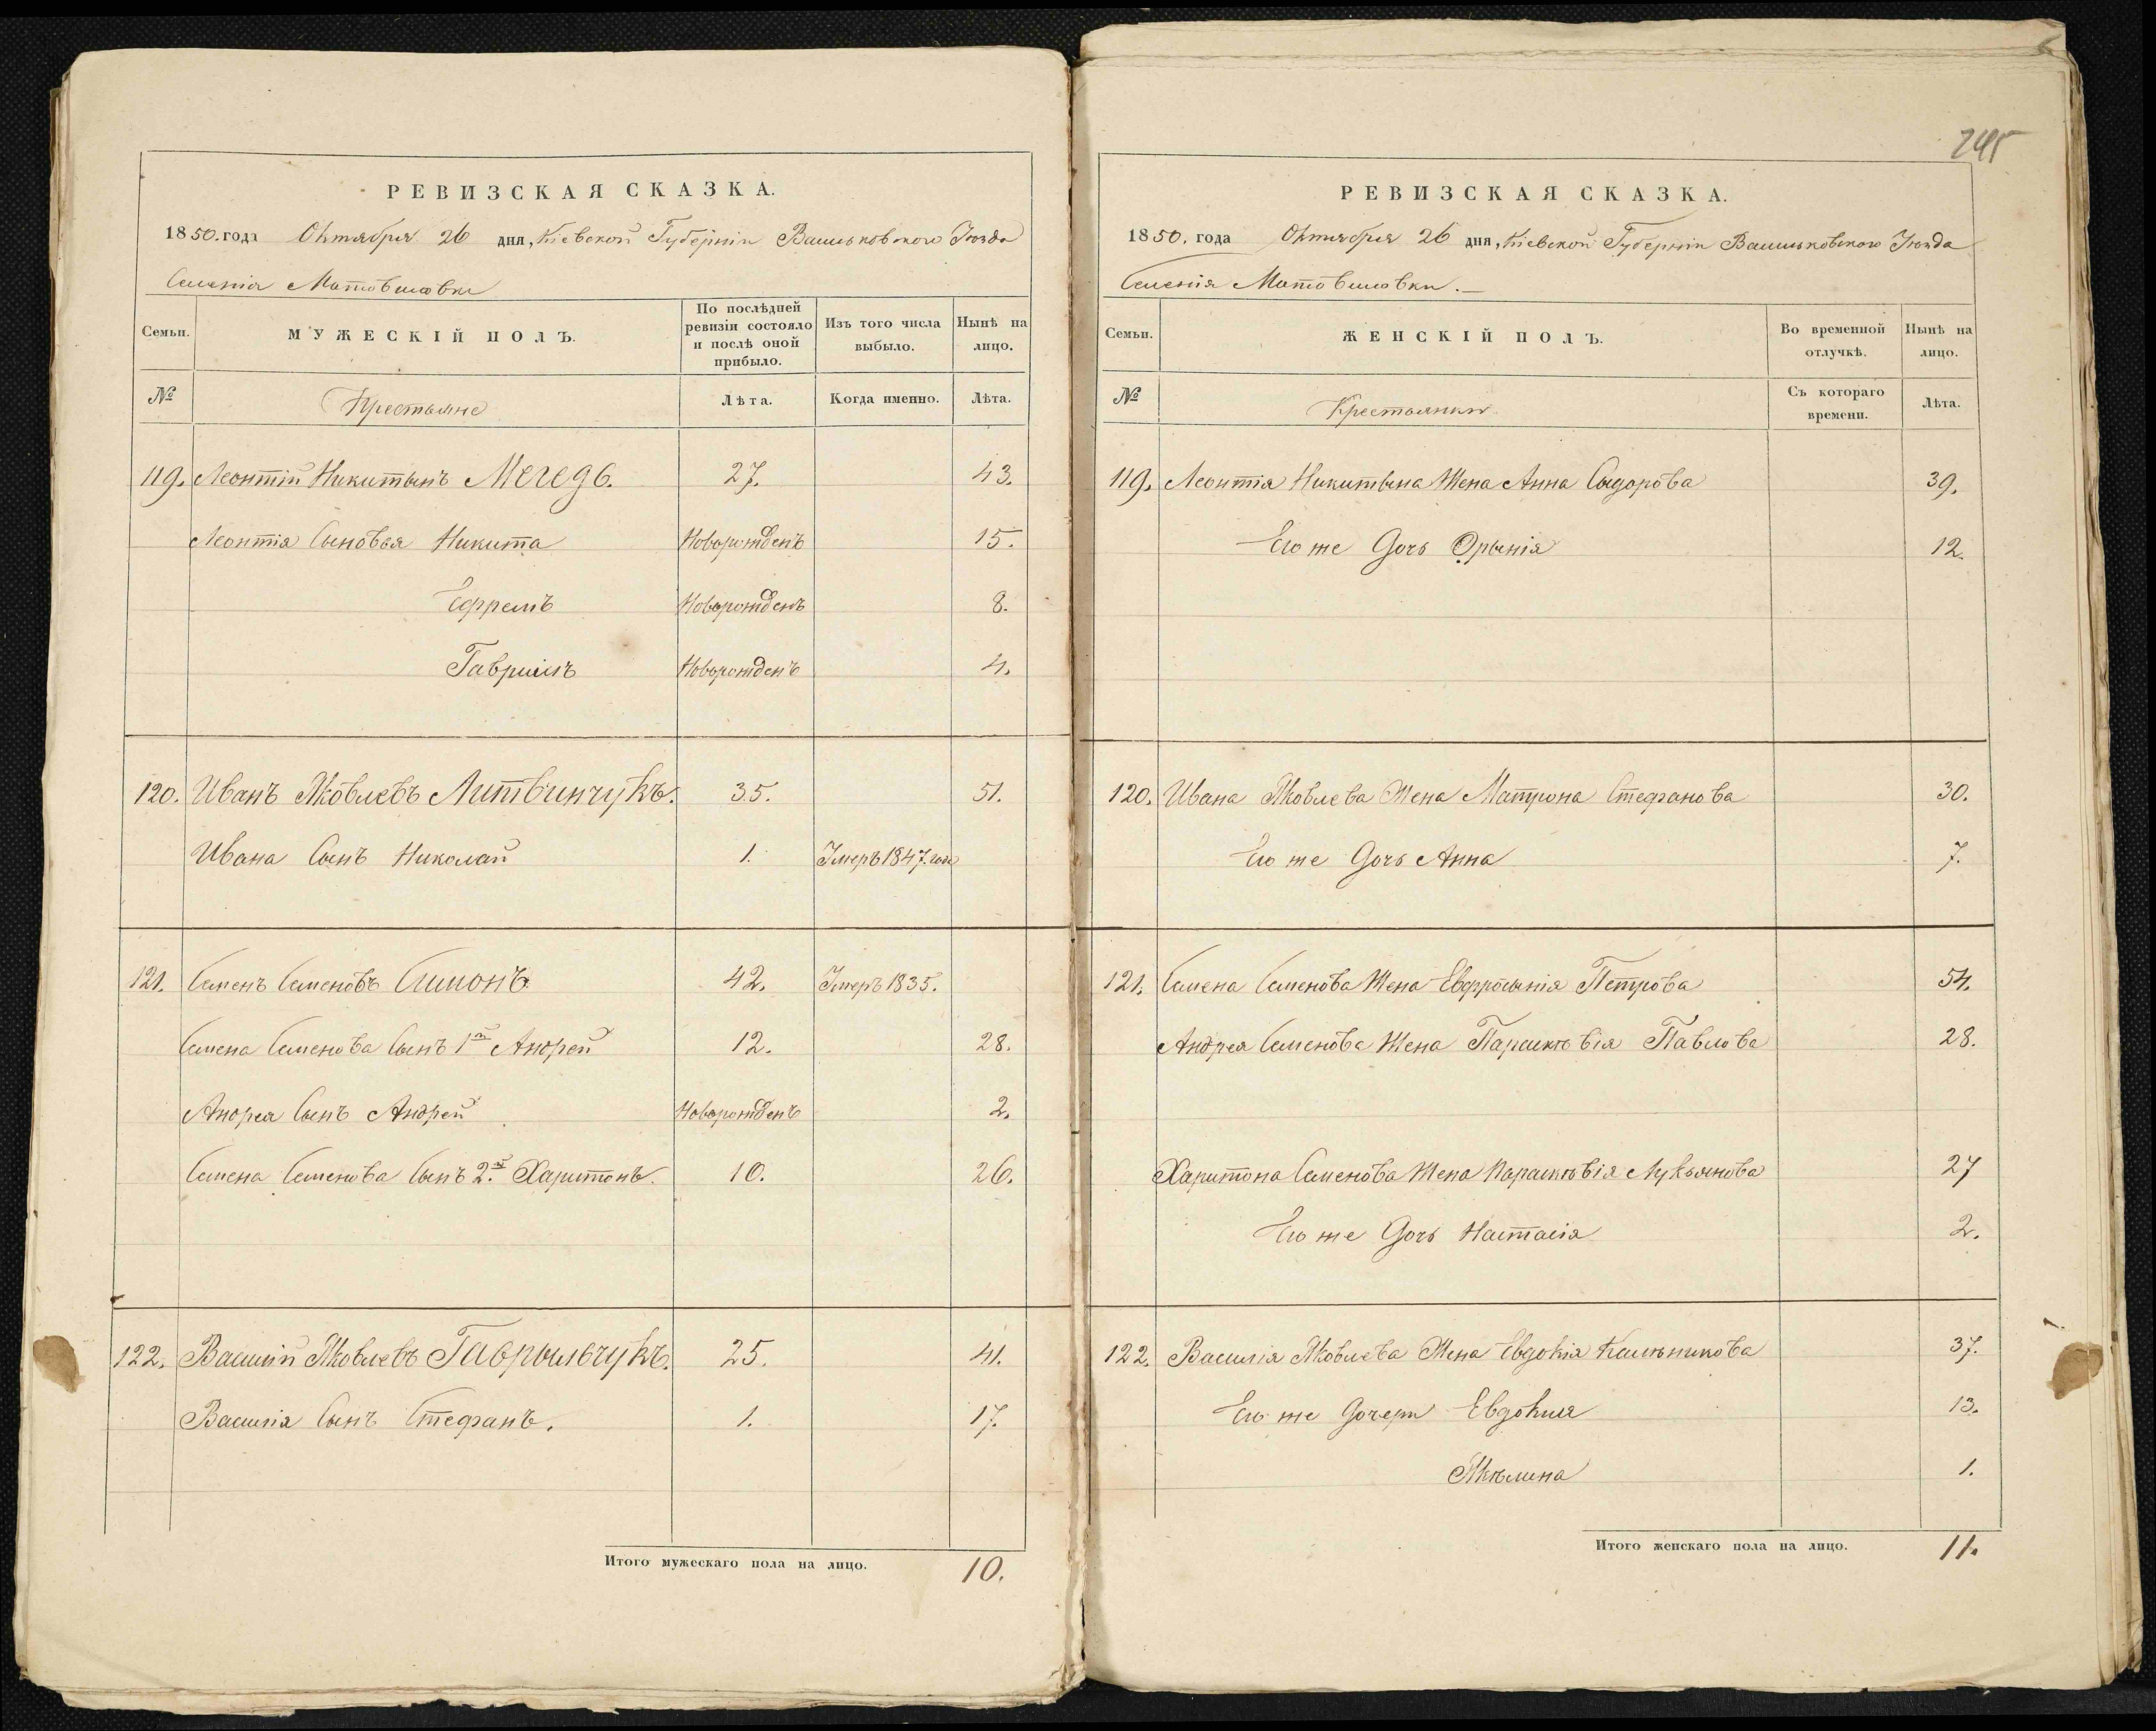 РЕВИЗСКАЯ СКАЗКА.
1850. года Октября 26 дня, Кіевской Губерніи Васильковского Уѣзда
Селенія Мотовиловки
Семьи. МУЖЕСКІЙ ПОЛЪ. По послѣдней ревизіи состояло и послѣ оной прибыло. Изъ того числа выбыло. Нынѣ на лицо.
№ Крестьяне Лѣта. Когда именно. Лѣта.
119. Леонтій Никитынъ Мегедь. 27. 43.
Леонтія Сыновья Никита Новорожденъ 15.
Ефремъ Новорожденъ 8.
Гавріилъ Новорожденъ 4.
120. Иванъ Яковлевъ Литвинчукъ. 35. 51.
Ивана Сынъ Николай 1. Умеръ 1847. года
121. Семенъ Семеновъ Симонъ. 42. Умеръ 1835.
Семена Семенова Сынъ 1й Андрей 12. 28.
Андрея Сынъ Андрей Новорожденъ 2.
Семена Семенова Сынъ 2.й Харитонъ. 10. 26.
122. Василій Яковлевъ Гаврыльчукъ. 25. 41.
Василія Сынъ Стефанъ. 1. 17.
Итого мужескаго пола на лицо. 10.
245
РЕВИЗСКАЯ СКАЗКА.
1850. года Октября 26 дня, Кіевской Губерніи Васильковского Уѣзда
Селенія Мотовиловки.
Семьи. ЖЕНСКІЙ ПОЛЪ. Во временной отлучкѣ. Нынѣ на лицо.
№ Крестьянки Съ котораго времени. Лѣта.
119. Леонтія Никитына Жена Анна Сыдорова 39.
Его же Дочь Орынія 12.
120. Ивана Яковлева Жена Матрона Стефанова 30.
Его же Дочь Анна 7.
121. Семена Семенова Жена Евфросынія Петрова 54.
Андрея Семенова Жена Параскѣвія Павлова 28.
Харитона Семенова Жена Параскѣвія Лукьянова 27
Его же Дочь Настасія 2.
122. Василія Яковлева Жена Евдокія 37.
Его же Дочери Евдокия 13.
1.
Итого женскаго пола на лицо. 11.